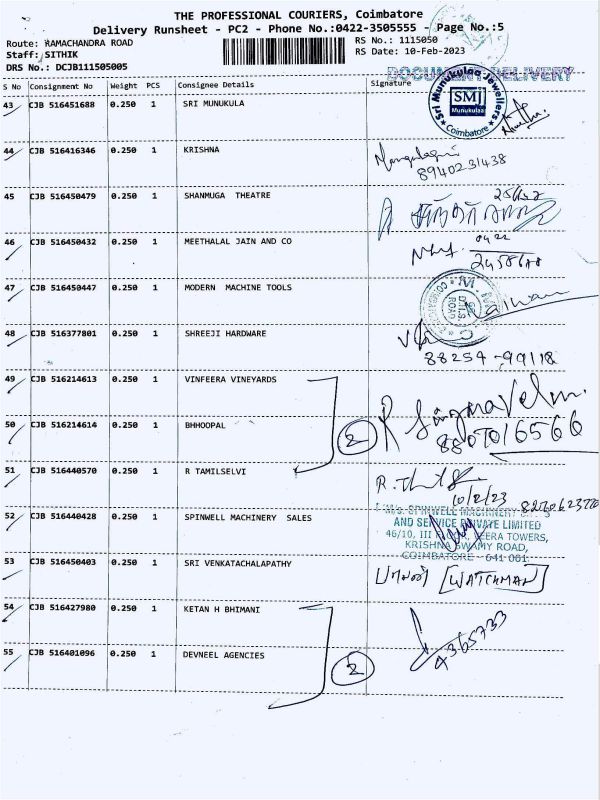 THE PROFESSIONAL COURIERS, Coimbatore
Delivery Runsheet - PC2 - Phone No.:0422-3505555 - Page No.:5
Route: RAMACHANDRA ROAD
RS No.: 1115050
Staff: SITHIK
RS Date: 10-Feb-2023
DRS No.: DCJB111505005
DOCUMENT DELIVERY
S No Consignment No Weight PCS Consignee Details Signature
Sri Munukulaa Jewellers
SMJ
Munukulaa
Coimbatore
43 CJB 516451688 0.250 1 SRI MUNUKULA
44 CJB 516416346 0.250 1 KRISHNA
8940231438
45 CJB 516450479 0.250 1 SHANMUGA THEATRE
46 CJB 516450432 0.250 1 MEETHALAL JAIN AND CO
0422
47 CJB 516450447 0.250 1 MODERN MACHINE TOOLS
48 CJB 516377801 0.250 1 SHREEJI HARDWARE
88254-99118
49 CJB 516214613 0.250 1 VINFEERA VINEYARDS
50 CJB 516214614 0.250 1 BHHOOPAL
2
8807016566
51 CJB 516440570 0.250 1 R TAMILSELVI
10/2/23
52 CJB 516440428 0.250 1 SPINWELL MACHINERY SALES
M/s. SPINWELL MACHINERY
AND SERVICE PRIVATE LIMITED
46/10, III FLOOR, TOWERS,
KRISHNASWAMY ROAD,
COIMBATORE - 641 001.
53 CJB 516450403 0.250 1 SRI VENKATACHALAPATHY
[WATCHMAN]
54 CJB 516427980 0.250 1 KETAN H BHIMANI
55 CJB 516401096 0.250 1 DEVNEEL AGENCIES
2